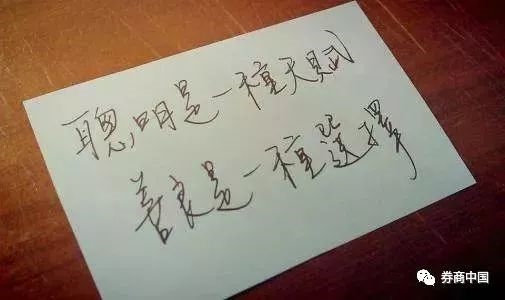 聰明是一種天賦
善良是一種選擇
券商中国